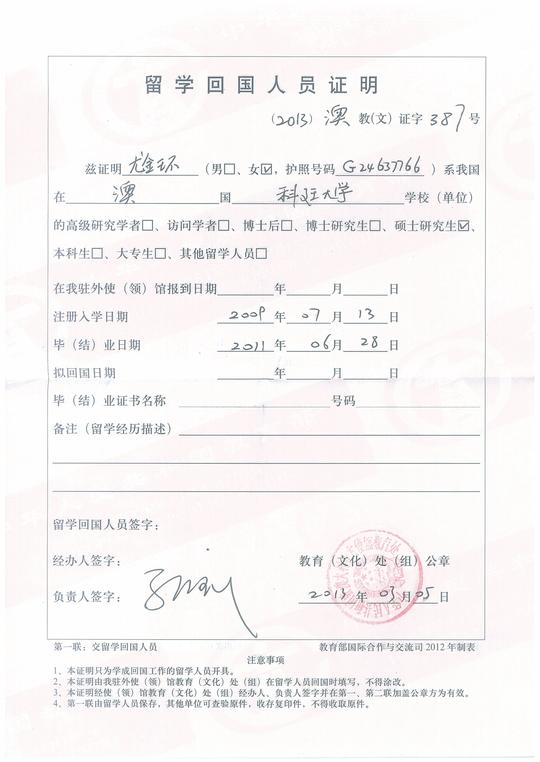 留学回国人员证明
(2013) 澳 教(文)证字 387号
兹证明 尤金环 (男□、女☑,护照号码 G24637766 )系我国
在 澳 国 科廷大学 学校(单位)
的高级研究学者□、访问学者□、博士后□、博士研究生□、硕士研究生☑、
本科生□、大专生□、其他留学人员□
在我驻外使(领)馆报到日期 年 月 日
注册入学日期 2009 年 07 月 13 日
毕(结)业日期 2011 年 06 月 28 日
拟回国日期 年 月 日
毕(结)业证书名称 号码
备注(留学经历描述)
留学回国人员签字:
经办人签字: 教育(文化)处(组)公章
负责人签字: 2013 年 03 月 05 日
第一联:交留学回国人员 教育部国际合作与交流司 2012 年制表
注意事项
1、本证明只为学成回国工作的留学人员开具。
2、本证明由我驻外使(领)馆教育(文化)处(组)在留学人员回国时填写,不得涂改。
3、本证明经使(领)馆教育(文化)处(组)经办人、负责人签字并在第一、第二联加盖公章方为有效。
4、第一联由留学人员保存,其他单位可查验原件,收存复印件,不得收取原件。